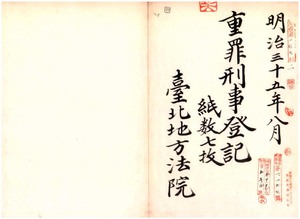 明治三十五年八月
重罪刑事登記
紙数七枚
臺北地方法院